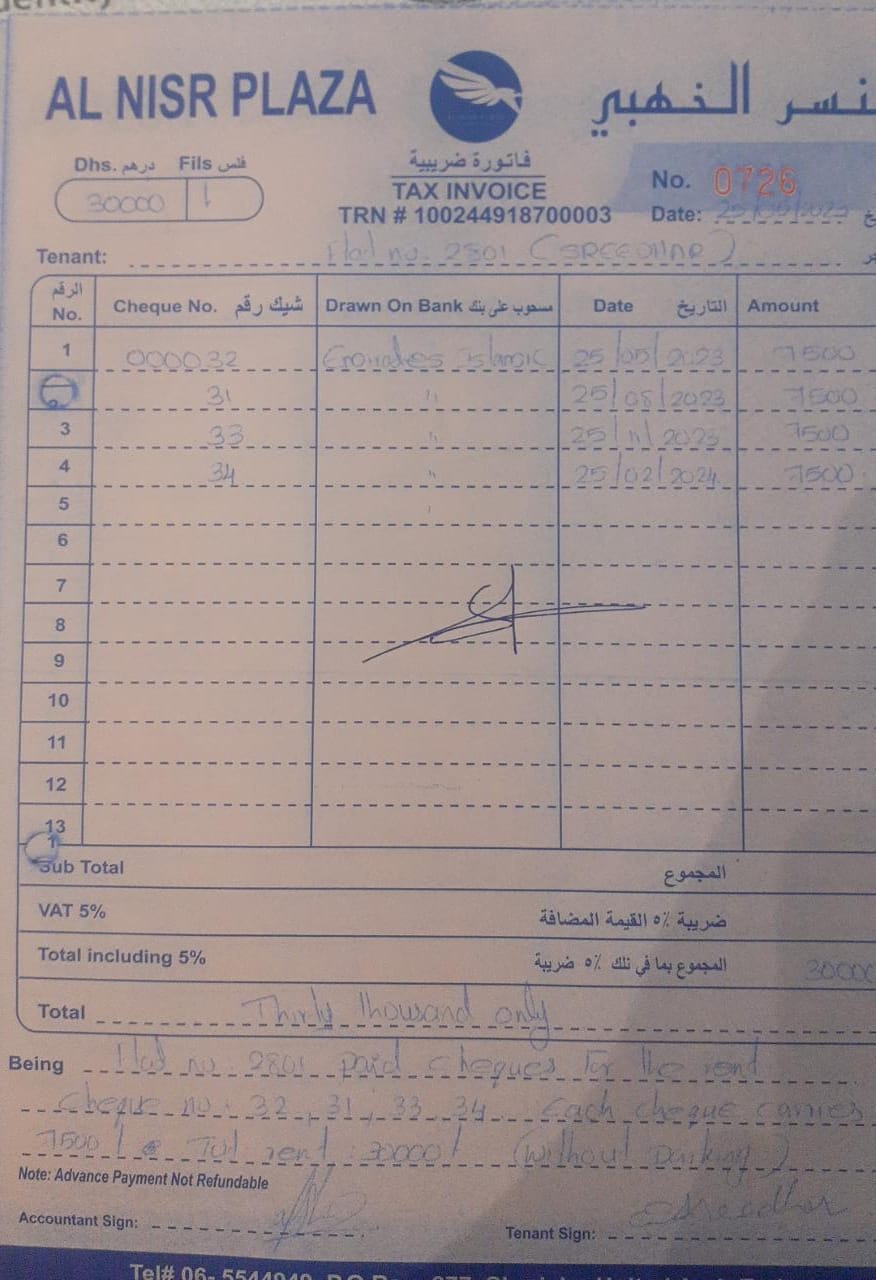 AL NISR PLAZA
نسر الذهبي
Dhs. درهم Fils فلس
30000
فاتورة ضريبية
TAX INVOICE
TRN # 100244918700003
No. 0726
Date: 25/05/2023
Tenant: Flat no: 2801 (SREEDHAR)
الرقم No. Cheque No. شيك رقم Drawn On Bank مسحوب على بنك Date التاريخ Amount
1 000032 Emirates Islamic 25/05/2023 7500
31 " 25/08/2023 7500
3 33 " 25/11/2023 7500
4 34 " 25/02/2024 7500
5
6
7
8
9
10
11
12
13
Sub Total المجموع
VAT 5% ضريبة ٥٪ القيمة المضافة
Total including 5% المجموع بما في ذلك ٥٪ ضريبة 30000
Total Thirty thousand only
Being Flat no: 2801 paid cheques for the rent
Cheque no: 32, 31, 33, 34. Each cheque carries
7500/ Tot rent: 30000/ (without parking)
Note: Advance Payment Not Refundable
Accountant Sign:
Tenant Sign: Sreedhar
Tel# 06- 5544949